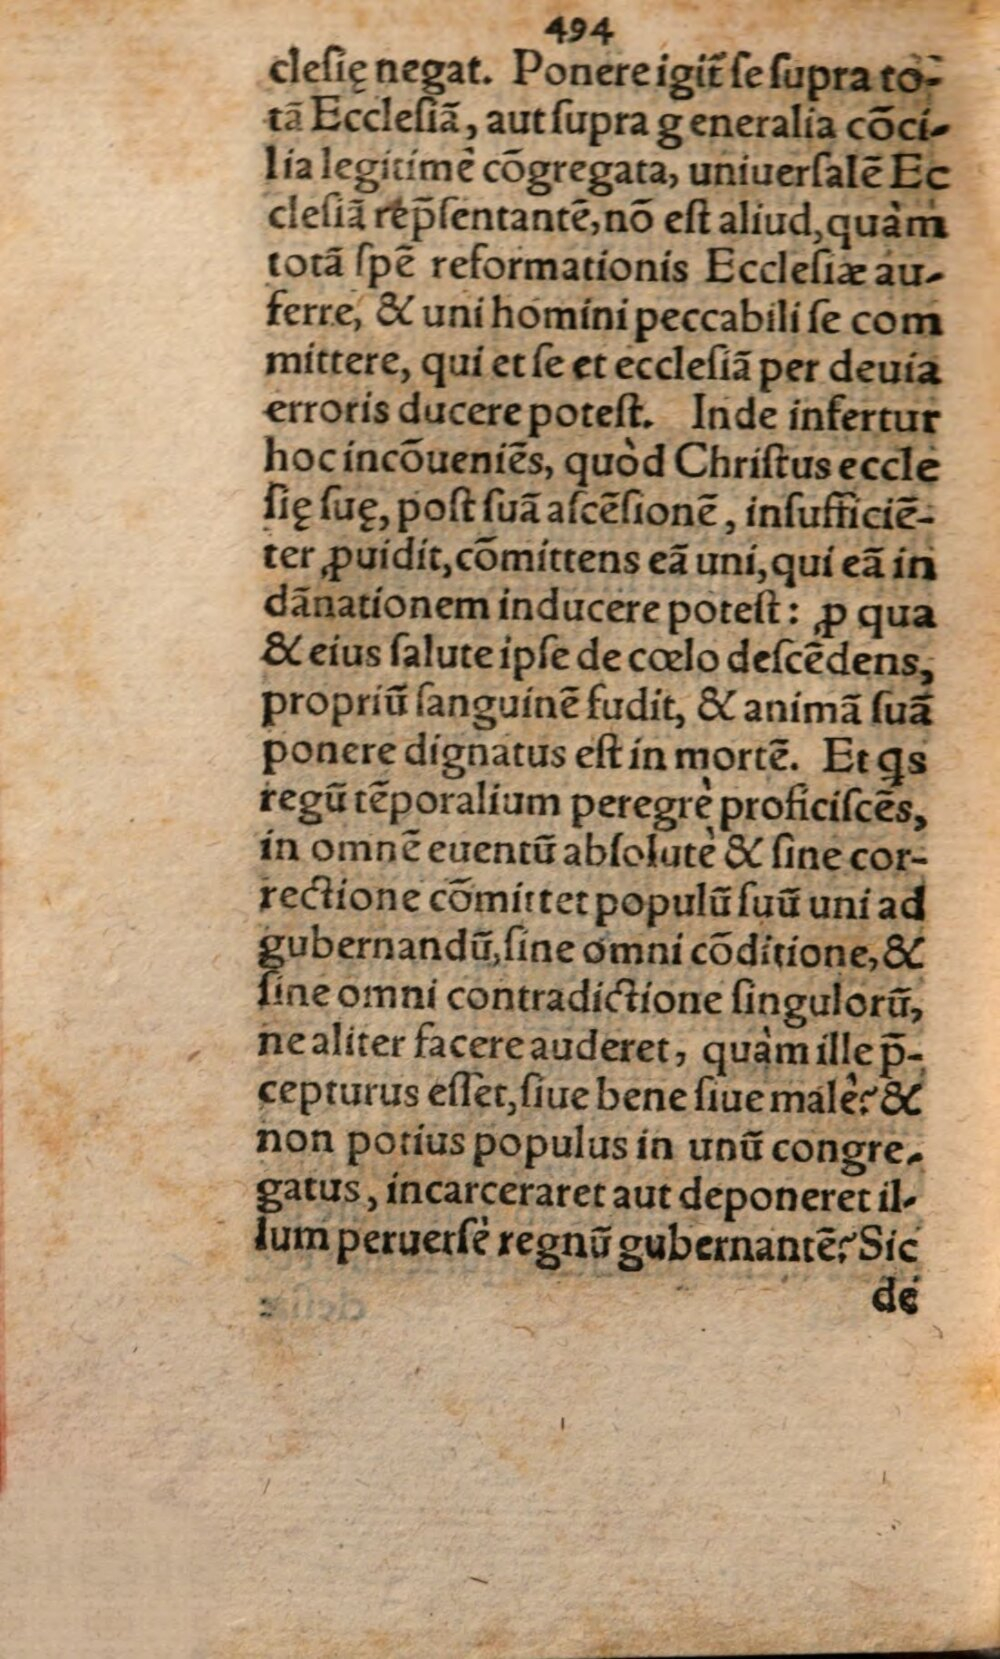 494
cleſię negat. Ponere igit̃ ſe ſupra to-
tã Eccleſiã, aut ſupra g eneralia cõci-
lia legitimè cõgregata, uniuerſalẽ Ec
cleſiã rep̃ſentantẽ, nõ eſt aliud, quàm
totã ſpẽ reformationis Eccleſiæ au-
ferre, & uni homini peccabili ſe com
mittere, qui et ſe et eccleſiã per deuia
erroris ducere poteſt. Inde infertur
hoc incõueniẽs, quòd Chriſtus eccle
ſię ſuę, poſt ſuã aſcẽſionẽ, inſufficiẽ-
ter ꝓuidit, cõmittens eã uni, qui eã in
dãnationem inducere poteſt: ꝓ qua
& eius ſalute ipſe de cœlo deſcẽdens,
propriũ ſanguinẽ fudit, & animã ſuã
ponere dignatus eſt in mortẽ. Et ꝗs
regũ tẽporalium peregrè proficiſcẽs,
in omnẽ euentũ abſolutè & ſine cor-
rectione cõmittet populũ ſuũ uni ad
gubernandũ, ſine omni cõditione, &
ſine omni contradictione ſingulorũ,
ne aliter facere auderet, quàm ille p̃-
cepturus eſſet, ſiue bene ſiue malè? &
non potius populus in unũ congre-
gatus, incarceraret aut deponeret il-
lum peruerſè regnũ gubernantẽ? Sic
de